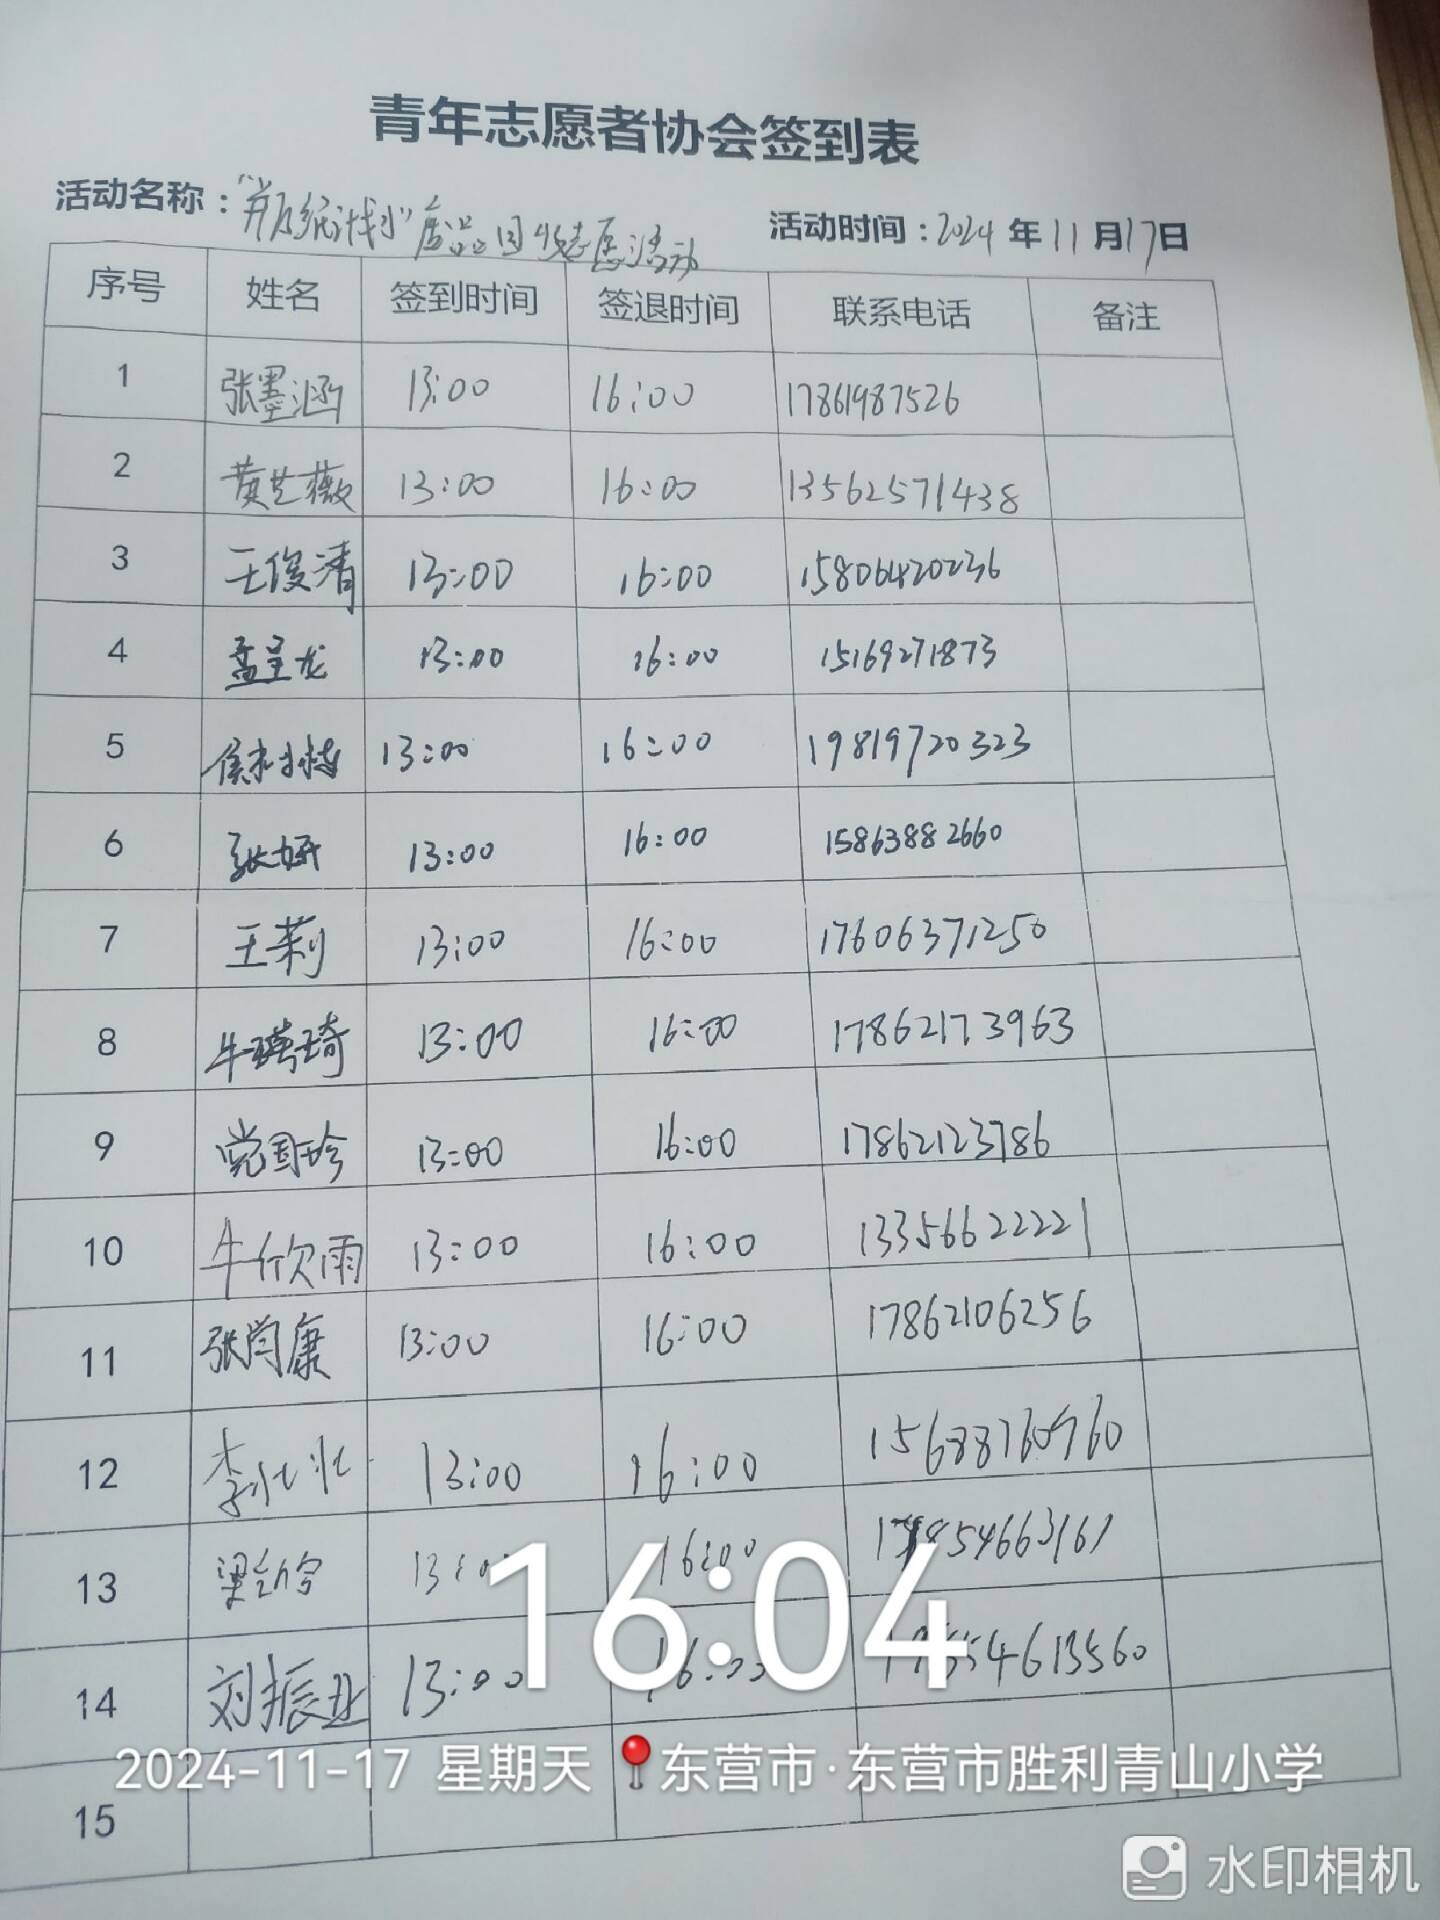 青年志愿者协会签到表
活动名称：“瓶纸计划”废品回收志愿活动 活动时间：2024年11月17日
序号 姓名 签到时间 签退时间 联系电话 备注
1 张墨涵 13:00 16:00 17861987526
2 黄芝薇 13:00 16:00 13562571438
3 王俊清 13:00 16:00 15806420236
4 孟呈龙 13:00 16:00 15169271873
5 13:00 16:00 19819720323
6 张妍 13:00 16:00 15863882660
7 王莉 13:00 16:00 17606371250
8 牛瑛琦 13:00 16:00 17862173963
9 党国珍 13:00 16:00 17862123786
10 牛欣雨 13:00 16:00 13356622221
11 张闫康 13:00 16:00 17862106256
12 李壮壮 13:00 16:00 15688760960
13 13:00 16:00
14 刘振亚 13:00 16:00
15
16:04
2024-11-17 星期天 东营市·东营市胜利青山小学
水印相机